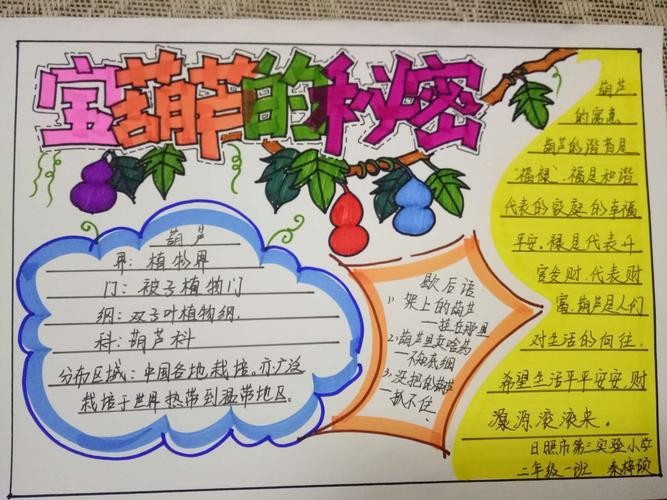 宝葫芦的秘密
葫芦
界：植物界
门：被子植物门
纲：双子叶植物纲
科：葫芦科
分布区域：中国各地栽培。亦广泛
栽培于世界热带到温带地区。
歇后语
1、架上的葫芦
—挂在那里
2、葫芦里卖啥药
—不知底细
3、没把的葫芦
—抓不住
葫芦
的寓意
葫芦的谐音是
“福禄”，福是和谐
代表的家庭的幸福
平安。禄是代表升
官发财。代表财
富。葫芦是人们
对生活的向往，
希望生活平平安安，财
源源滚滚来。
日照市第三实验小学
二年级一班 秦梓硕